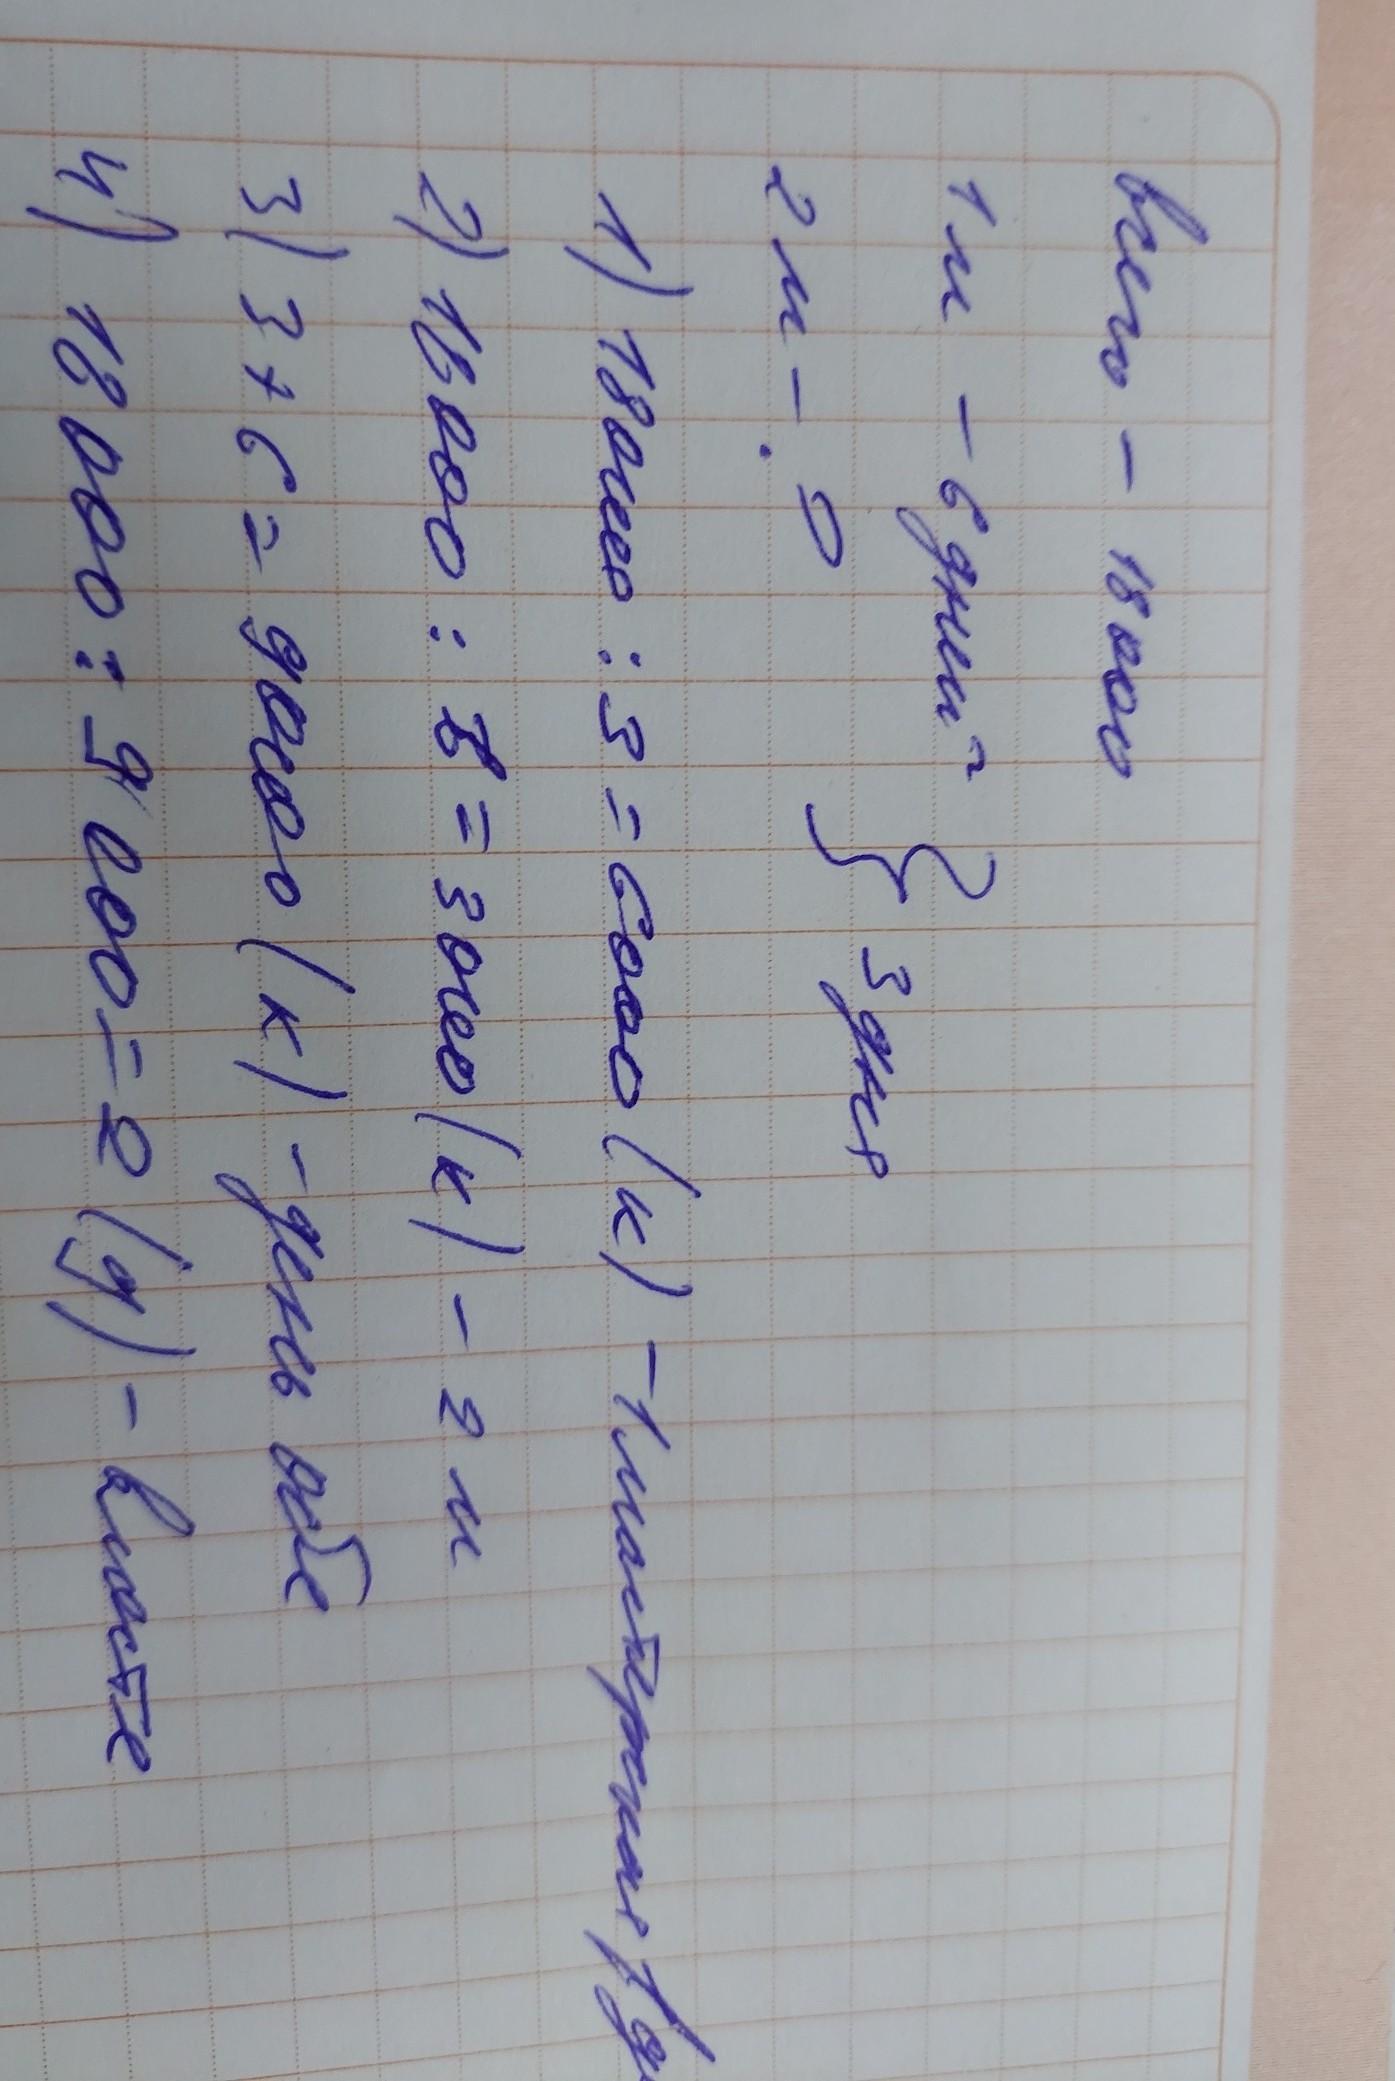 Всего - 18000
1 м - 6 дней
2 м - ?
} 3 дня
1) 18000 : 3 = 6000 (к) - 1 матерная 1 д
2) 18000 : 6 = 3000 (к) - 2 м
3) 3 + 6 = 9000 (к) - день обе
4) 18000 : 9000 = 2 (д) - вместе